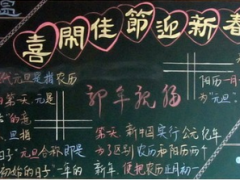 喜閙佳節迎新春
代元旦是指农历
阳历一月
第一天，元是
为"元旦"
的意
新年祝福
旦指
第一天。新中国实行公元纪年
日子"元旦合称即是
为了区别农历和阳历两个
初始的日子"一年的
新年，便把农历正月初一